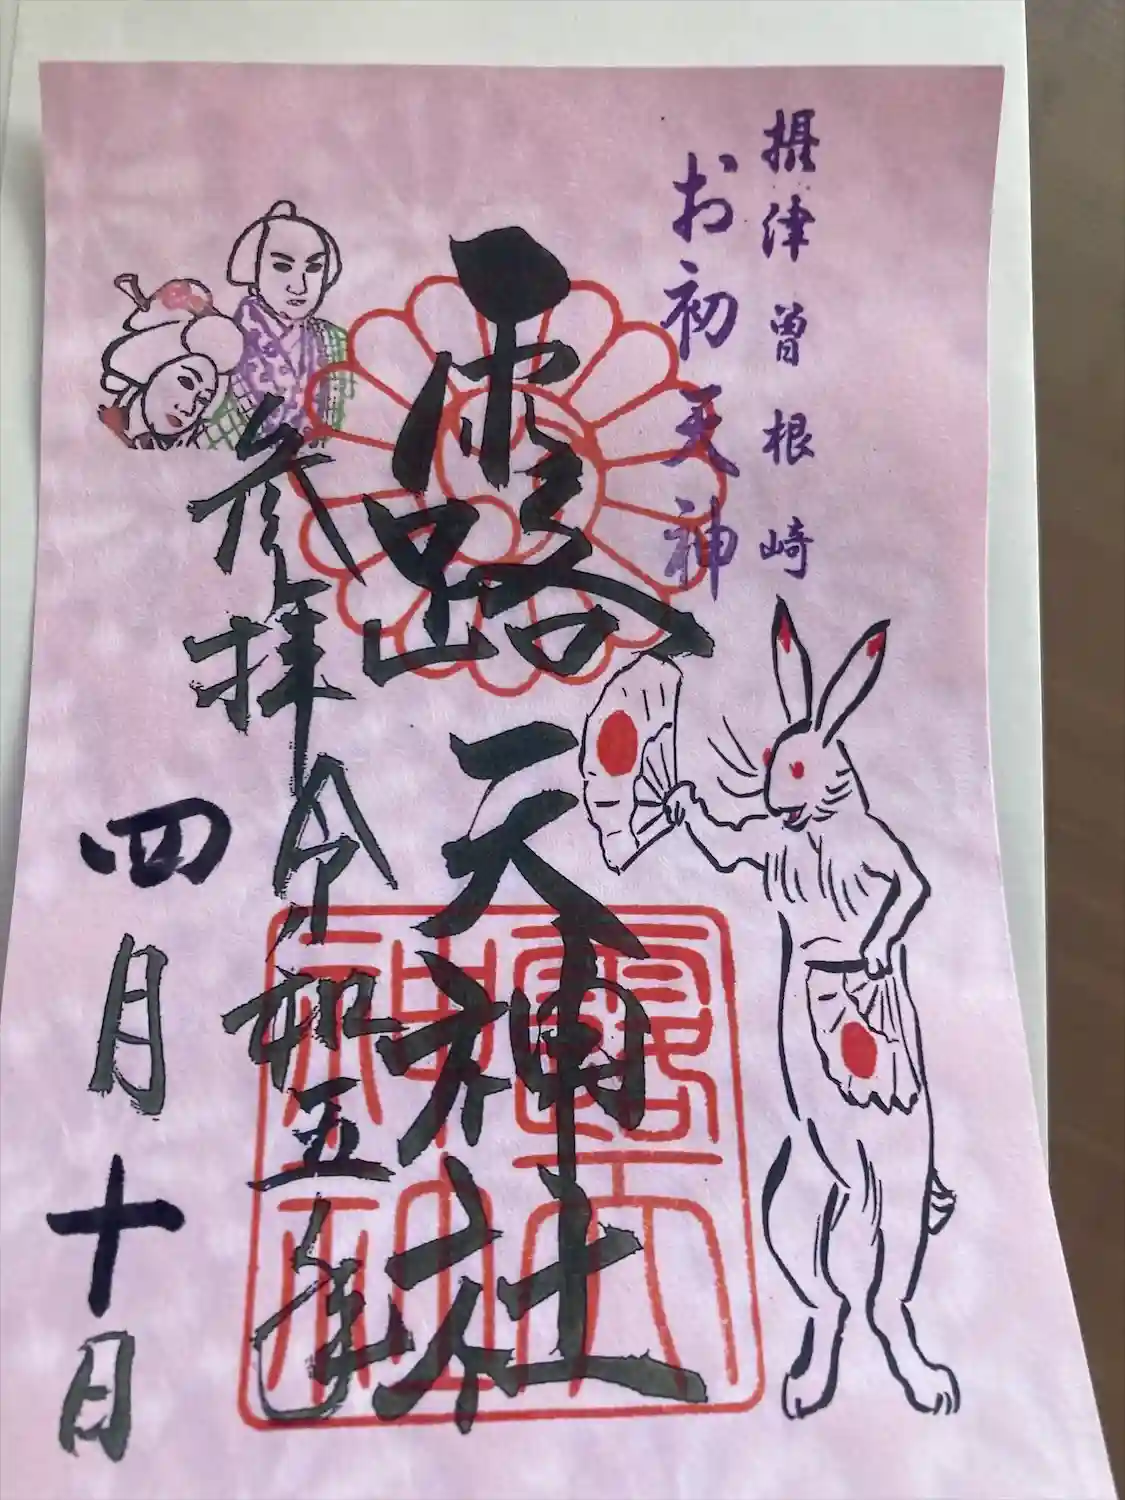 摂津曽根崎
お初天神
露天神社
参拝令和五年
四月十日
露天神社